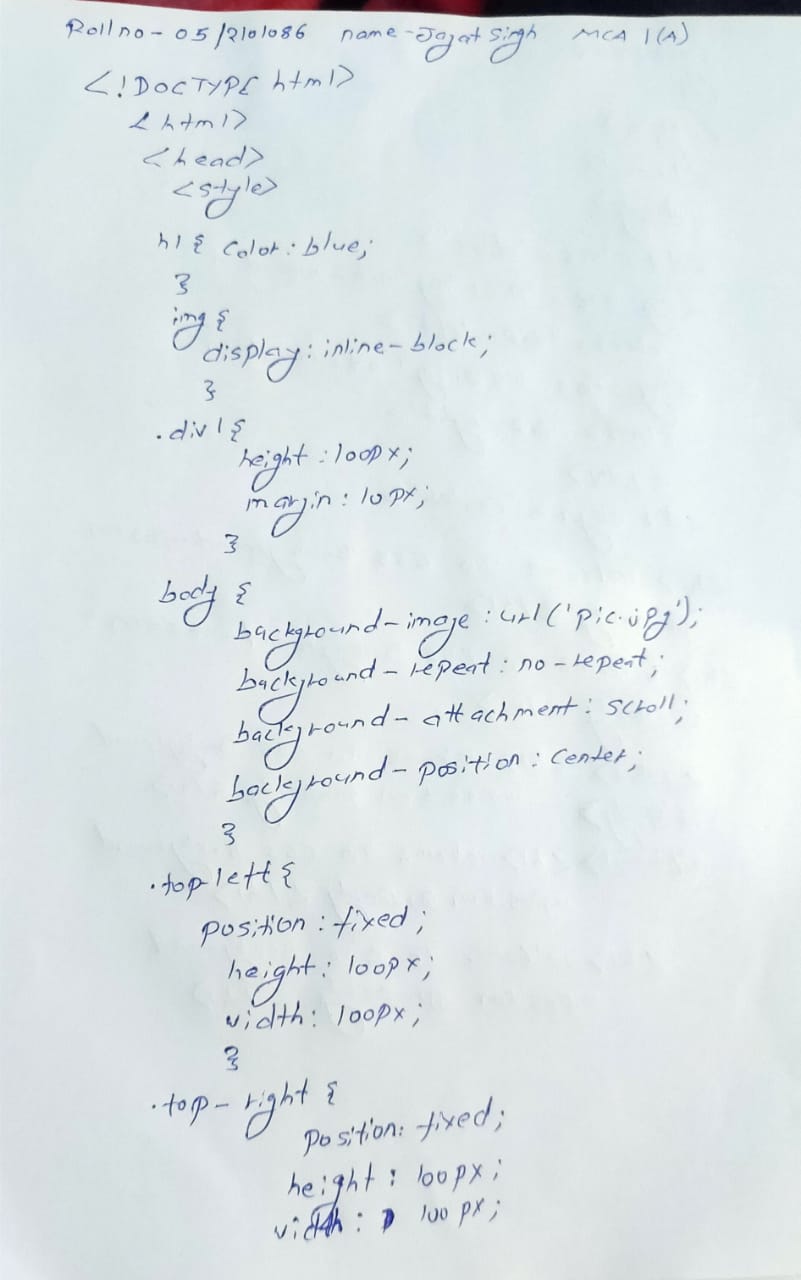 Roll no - 05/2101086 name - Jagat Singh MCA 1(A)
<!DOCTYPE html>
<html>
<head>
<style>
h1{ color: blue;
}
img{
display: inline-block;
}
.div1{
height: 100px;
margin: 10px;
}
body {
background-image: url('pic.jpg');
background-repeat: no-repeat;
background-attachment: scroll;
background-position: center;
}
.top-left{
position: fixed;
height: 100px;
width: 100px;
}
.top-right {
position: fixed;
height: 100px;
width: 100px;